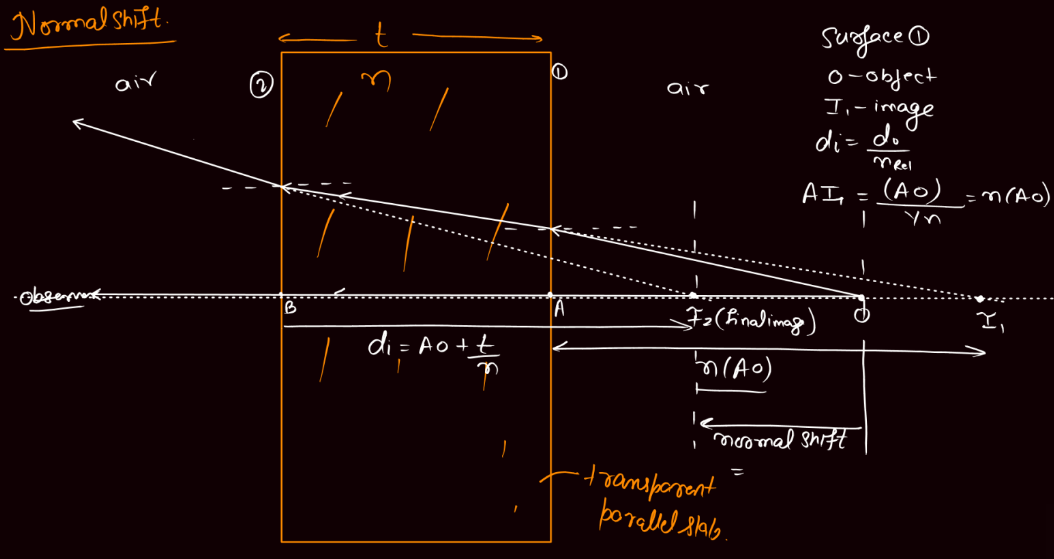 Normal shift.
t
air
②
n
①
air
Surface ①
O - object
I₁ - image
di = do / nRel
AI₁ = (AO) / 1/n = n(AO)
Observer
B
A
I₂ (final image)
O
I₁
di = AO + t/n
n(AO)
normal shift
=
transparent
parallel slab.